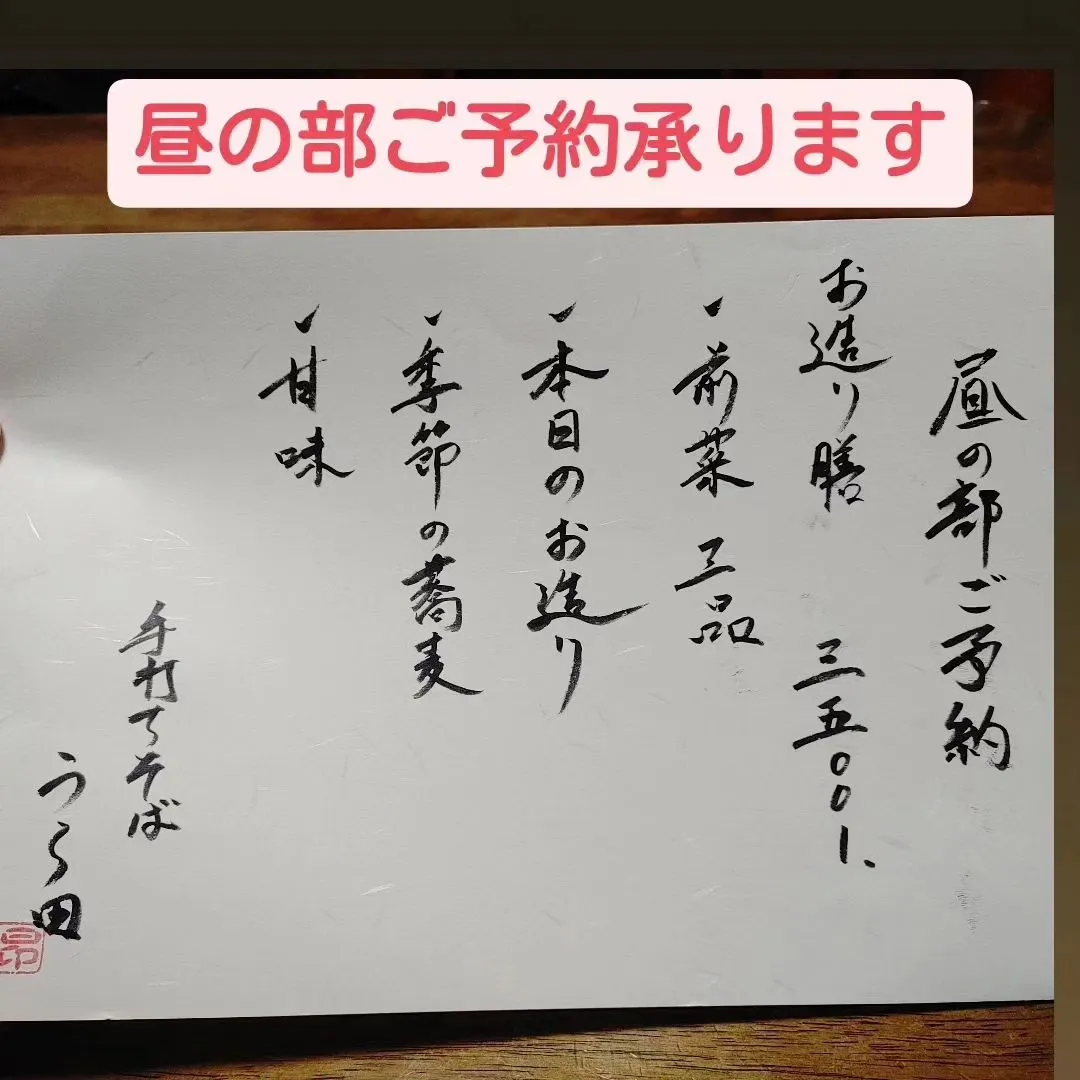 昼の部ご予約承ります
昼の部ご予約
お造り膳 三五〇〇一、
、前菜 三品
、本日のお造り
、季節の蕎麦
、甘味
手打ちそば
うら田
昴